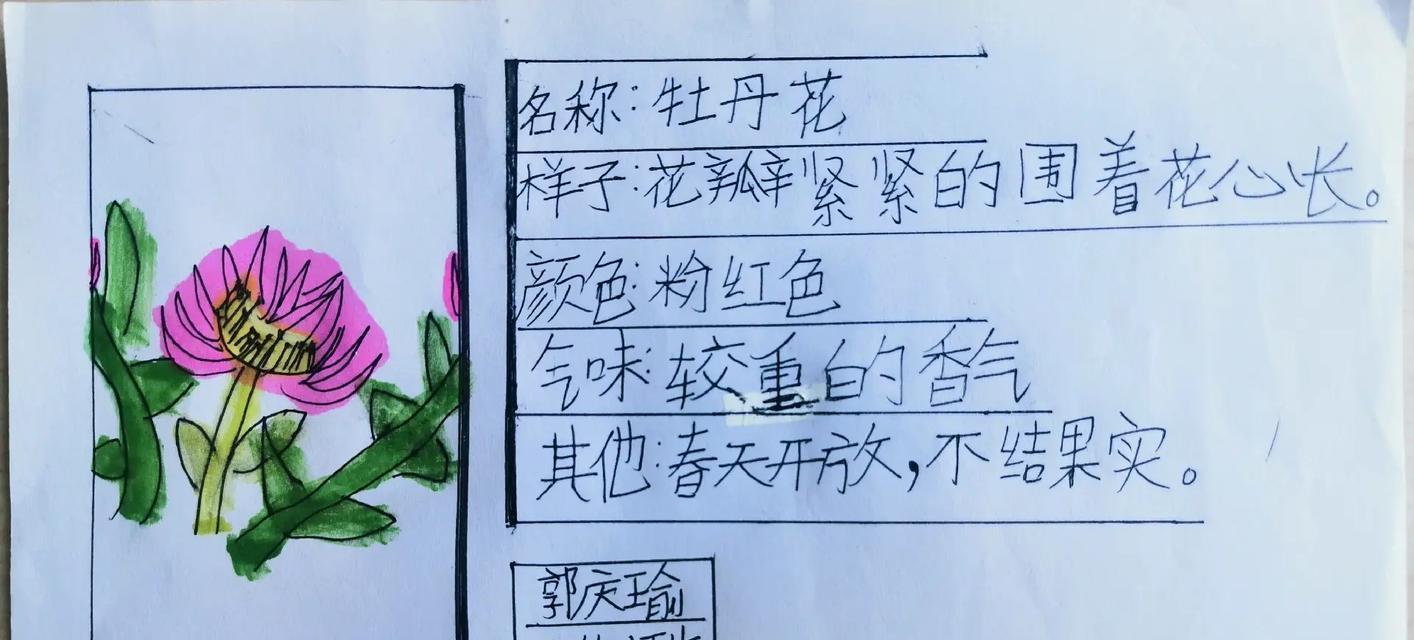 名称:牡丹花
样子:花瓣紧紧的围着花心长。
颜色:粉红色
气味:较重的香气
其他:春天开放,不结果实。
郭庆瑜